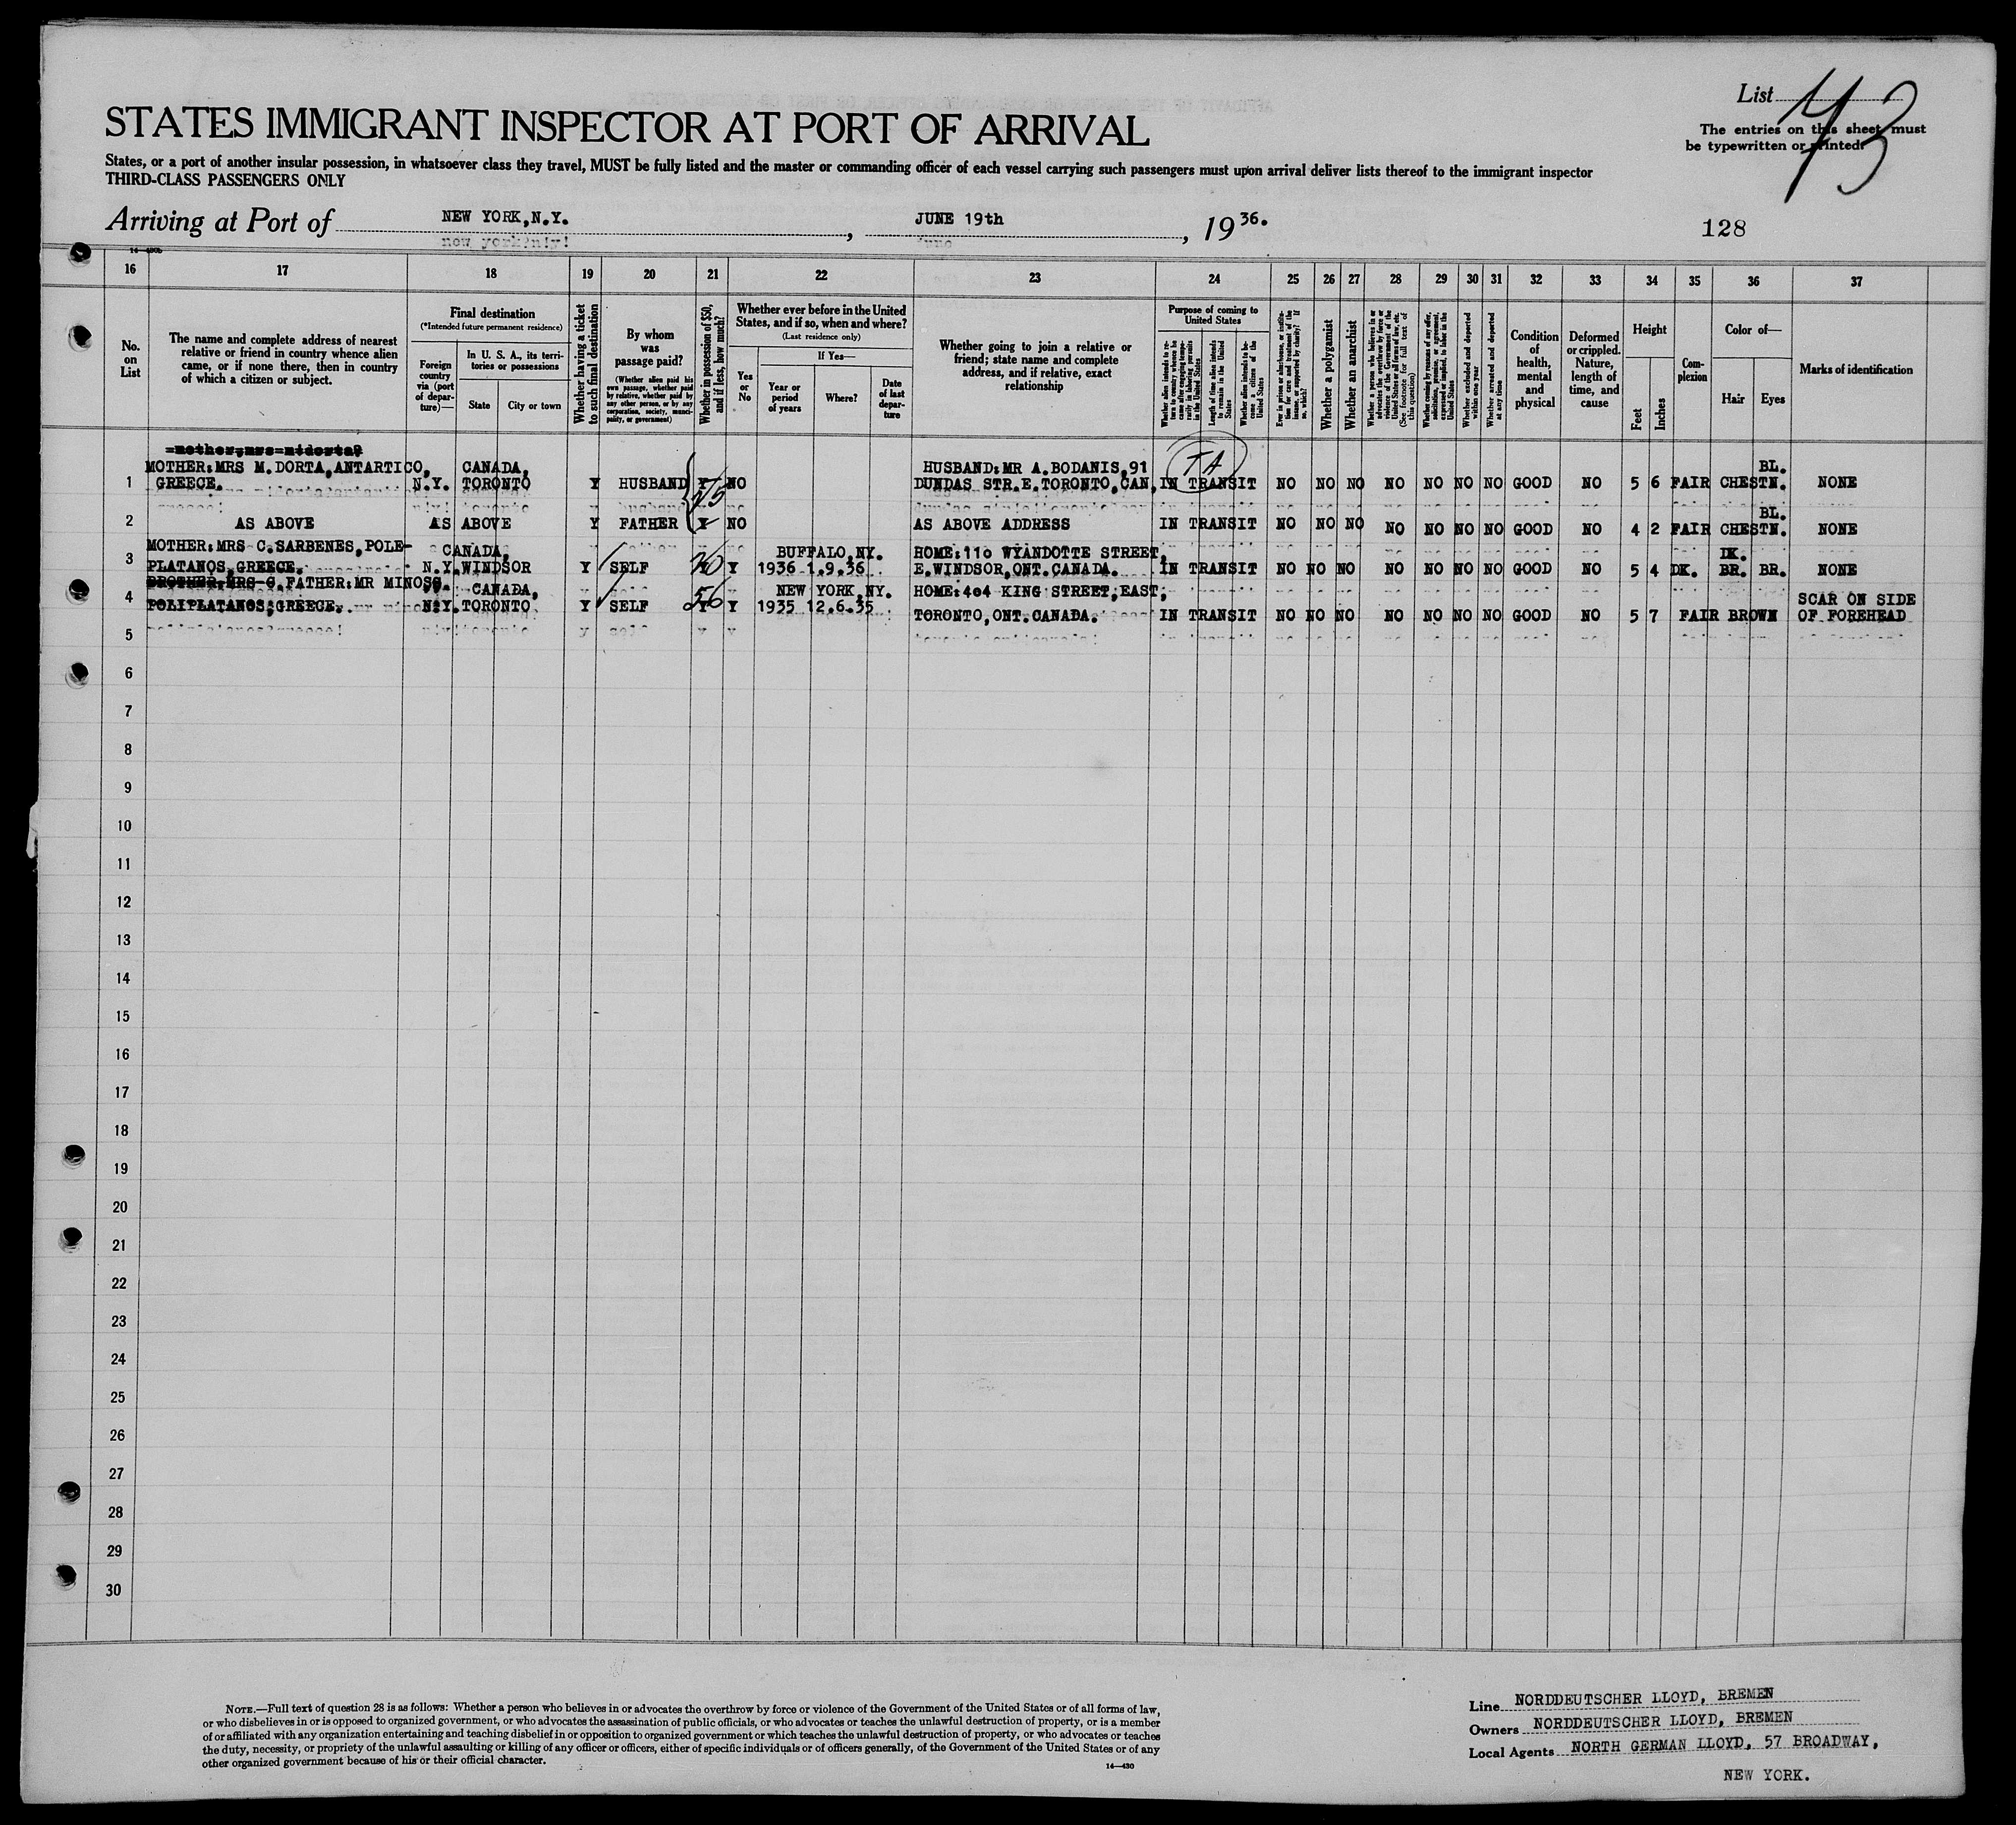 List 43
STATES IMMIGRANT INSPECTOR AT PORT OF ARRIVAL
The entries on this sheet must
be typewritten or printed.
States, or a port of another insular possession, in whatsoever class they travel, MUST be fully listed and the master or commanding officer of each vessel carrying such passengers must upon arrival deliver lists thereof to the immigrant inspector
THIRD-CLASS PASSENGERS ONLY
Arriving at Port of NEW YORK,N.Y. , JUNE 19th , 1936.
128
16 17 18 19 20 21 22 23 24 25 26 27 28 29 30 31 32 33 34 35 36 37
No. on List
The name and complete address of nearest relative or friend in country whence alien came, or if none there, then in country of which a citizen or subject.
Final destination
(*Intended future permanent residence)
Foreign country via (port of departure)—
In U. S. A., its territories or possessions
State
City or town
Whether having a ticket to such final destination
By whom was passage paid?
(Whether alien paid his own passage, whether paid by relative, whether paid by any other person, or by any corporation, society, municipality, or government)
Whether in possession of $50, and if less, how much?
Whether ever before in the United States, and if so, when and where?
(Last residence only)
Yes or No
If Yes—
Year or period of years
Where?
Date of last departure
Whether going to join a relative or friend; state name and complete address, and if relative, exact relationship
Purpose of coming to United States
Whether alien intends to return to country whence he came after engaging temporarily in laboring pursuits in the United States
Length of time alien intends to remain in the United States
Whether alien intends to become a citizen of the United States
Ever in prison or almshouse, or institution for care and treatment of the insane, or supported by charity? If so, which?
Whether a polygamist
Whether an anarchist
(See footnote for full text of this question)
Whether excluded and deported within one year
Whether arrested and deported at any time
Condition of health, mental and physical
Deformed or crippled. Nature, length of time, and cause
Height
Feet
Inches
Complexion
Color of—
Hair
Eyes
Marks of identification
TA
MOTHER:MRS M.DORTA,ANTARTICO, CANADA, HUSBAND:MR A.BODANIS,91 BL.
1 GREECE. N.Y. TORONTO Y HUSBAND Y NO DUNDAS STR.E.TORONTO,CAN, IN TRANSIT NO NO NO NO NO NO NO GOOD NO 5 6 FAIR CHESTN. NONE
BL.
2 AS ABOVE AS ABOVE Y FATHER Y NO AS ABOVE ADDRESS IN TRANSIT NO NO NO NO NO NO NO GOOD NO 4 2 FAIR CHESTN. NONE
MOTHER:MRS C.SARBENES,POLE- CANADA, BUFFALO,NY. HOME:110 WYANDOTTE STREET, DK.
3 PLATANOS,GREECE. N.Y.WINDSOR Y SELF Y 1936 1.9.36 E.WINDSOR,ONT.CANADA. IN TRANSIT NO NO NO NO NO NO NO GOOD NO 5 4 DK. BR. BR. NONE
BROTHER,MRS C.FATHER:MR MINOSS. CANADA, NEW YORK,NY. HOME:404 KING STREET,EAST, SCAR ON SIDE
4 POLIPLATANOS,GREECE. N.Y.TORONTO Y SELF 56 Y 1935 12.6.35 TORONTO,ONT.CANADA. IN TRANSIT NO NO NO NO NO NO NO GOOD NO 5 7 FAIR BROWN OF FOREHEAD
5
6
7
8
9
10
11
12
13
14
15
16
17
18
19
20
21
22
23
24
25
26
27
28
29
30
NOTE.—Full text of question 28 is as follows: Whether a person who believes in or advocates the overthrow by force or violence of the Government of the United States or of all forms of law,
or who disbelieves in or is opposed to organized government, or who advocates the assassination of public officials, or who advocates or teaches the unlawful destruction of property, or is a member
of or affiliated with any organization entertaining and teaching disbelief in or opposition to organized government or which teaches the unlawful destruction of property, or who advocates or teaches
the duty, necessity, or propriety of the unlawful assaulting or killing of any officer or officers, either of specific individuals or of officers generally, of the Government of the United States or of any
other organized government because of his or their official character.
14—430
Line NORDDEUTSCHER LLOYD, BREMEN
Owners NORDDEUTSCHER LLOYD, BREMEN
Local Agents NORTH GERMAN LLOYD, 57 BROADWAY,
NEW YORK.